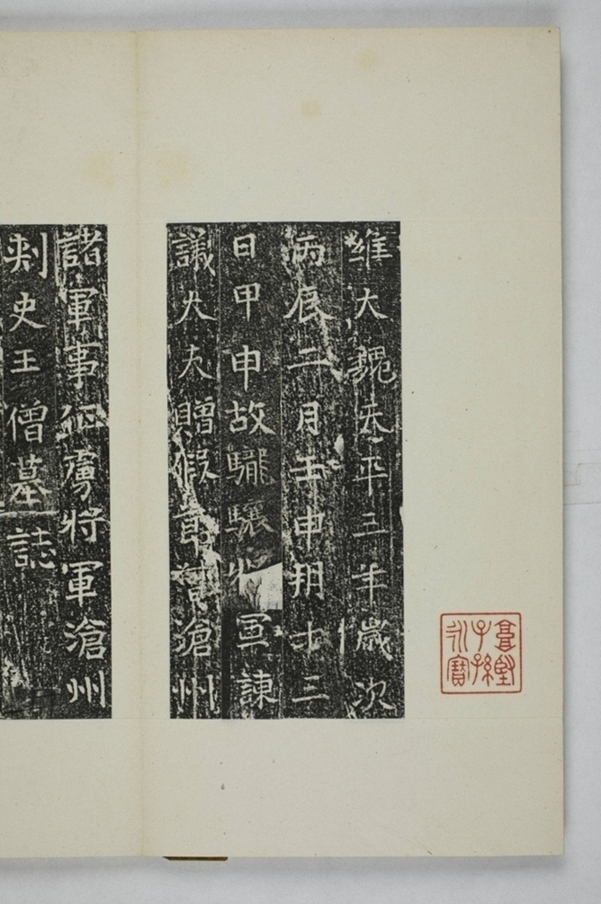 維大魏天平三年歲次
丙辰二月壬申朔十三
日甲申故䮾驤將軍諫
議大夫贈假節督滄州
諸軍事征虜將軍滄州
刺史王僧墓誌
子孫
永寶